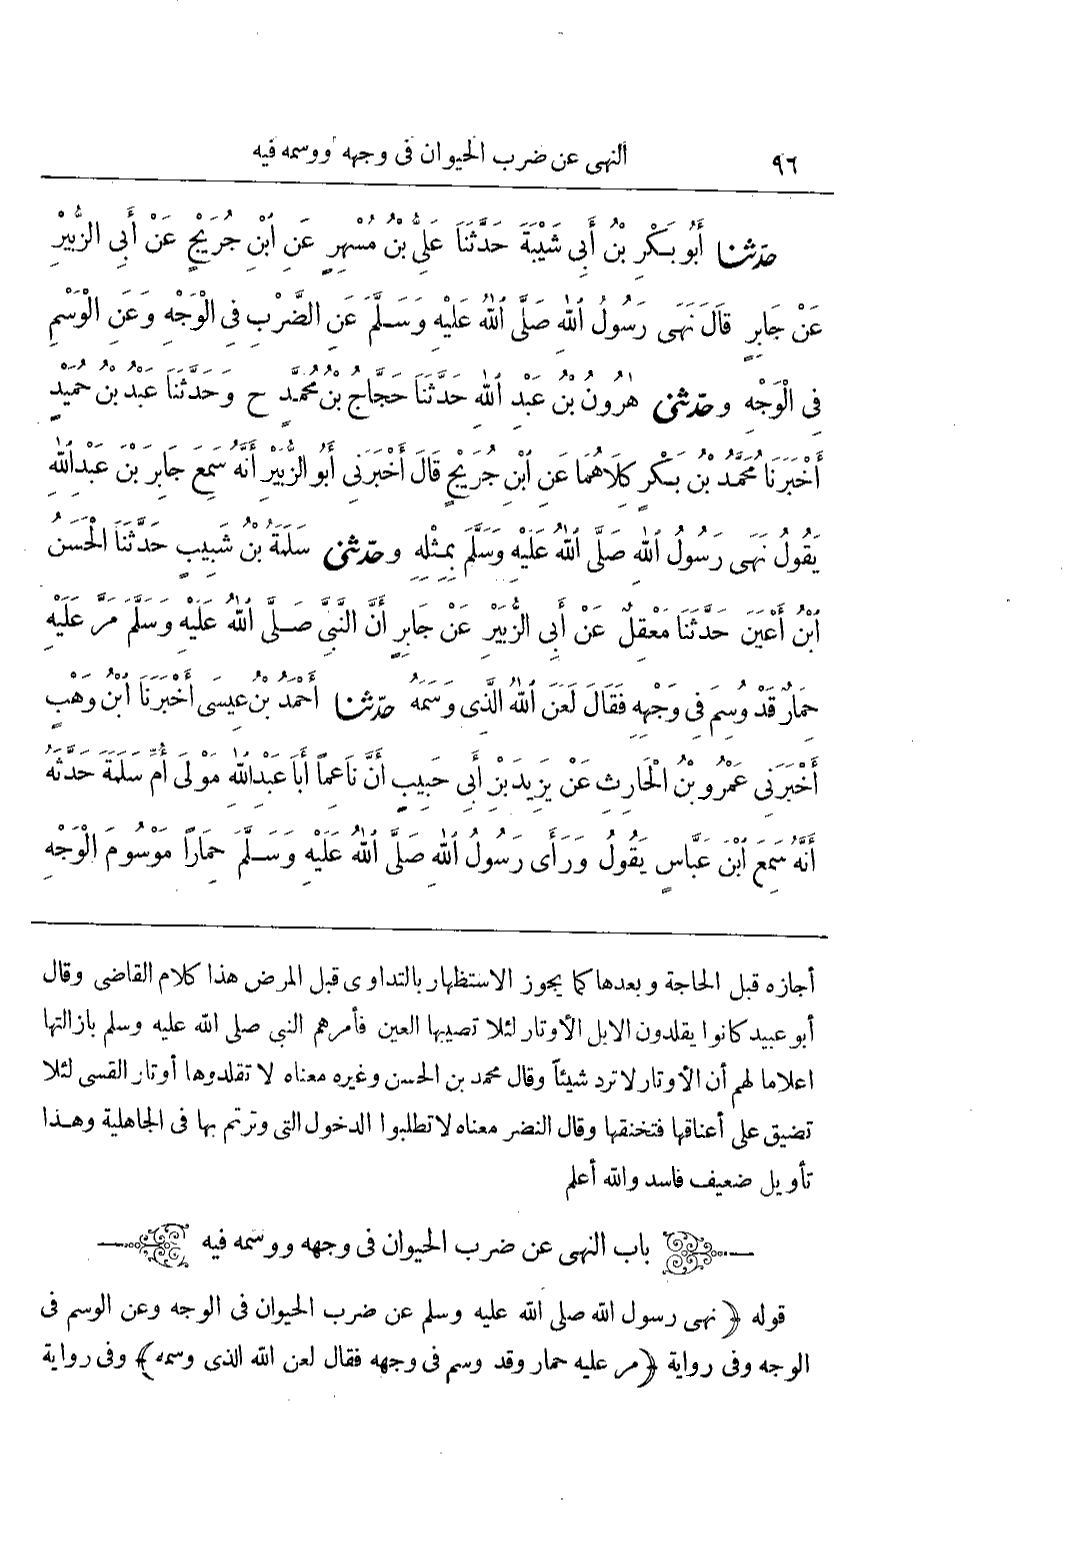 ٩٦ النهى عن ضرب الحيوان فى وجهه ووسمه فيه
حدّثنا أَبُو بَكْرِ بْنُ أَبِى شَيْبَةَ حَدَّثَنَا عَلِىُّ بْنُ مُسْهِرٍ عَنِ ابْنِ جُرَيْجٍ عَنْ أَبِى الزُّبَيْرِ
عَنْ جَابِرٍ قَالَ نَهَى رَسُولُ اللهِ صَلَّى اللهُ عَلَيْهِ وَسَلَّمَ عَنِ الضَّرْبِ فِى الْوَجْهِ وَعَنِ الْوَسْمِ
فِى الْوَجْهِ وحدّثنى هٰرُونُ بْنُ عَبْدِ اللهِ حَدَّثَنَا حَجَّاجُ بْنُ مُحَمَّدٍ ح وَحَدَّثَنَا عَبْدُ بْنُ حُمَيْدٍ
أَخْبَرَنَا مُحَمَّدُ بْنُ بَكْرٍ كِلَاهُمَا عَنِ ابْنِ جُرَيْجٍ قَالَ أَخْبَرَنِى أَبُو الزُّبَيْرِ أَنَّهُ سَمِعَ جَابِرَ بْنَ عَبْدِ اللهِ
يَقُولُ نَهَى رَسُولُ اللهِ صَلَّى اللهُ عَلَيْهِ وَسَلَّمَ بِمِثْلِهِ وحدّثنى سَلَمَةُ بْنُ شَبِيبٍ حَدَّثَنَا الْحَسَنُ
ابْنُ أَعْيَنَ حَدَّثَنَا مَعْقِلٌ عَنْ أَبِى الزُّبَيْرِ عَنْ جَابِرٍ أَنَّ النَّبِىَّ صَلَّى اللهُ عَلَيْهِ وَسَلَّمَ مَرَّ عَلَيْهِ
حِمَارٌ قَدْ وُسِمَ فِى وَجْهِهِ فَقَالَ لَعَنَ اللهُ الَّذِى وَسَمَهُ حدّثنا أَحْمَدُ بْنُ عِيسَى أَخْبَرَنَا ابْنُ وَهْبٍ
أَخْبَرَنِى عَمْرُو بْنُ الْحَارِثِ عَنْ يَزِيدَ بْنِ أَبِى حَبِيبٍ أَنَّ نَاعِمًا أَبَا عَبْدِ اللهِ مَوْلَى أُمِّ سَلَمَةَ حَدَّثَهُ
أَنَّهُ سَمِعَ ابْنَ عَبَّاسٍ يَقُولُ وَرَأَى رَسُولُ اللهِ صَلَّى اللهُ عَلَيْهِ وَسَلَّمَ حِمَارًا مَوْسُومَ الْوَجْهِ
أجازه قبل الحاجة وبعدها كما يجوز الاستظهار بالتداوى قبل المرض هذا كلام القاضى وقال
أبو عبيد كانوا يقلدون الابل الأوتار لئلا تصيبها العين فأمرهم النبى صلى الله عليه وسلم بازالتها
اعلاما لهم أن الأوتار لا ترد شيئاً وقال محمد بن الحسن وغيره معناه لا تقلدوها أوتار القسى لئلا
تضيق على أعناقها فتخنقها وقال النضر معناه لا تطلبوا الدخول التى وترتم بها فى الجاهلية وهذا
تأويل ضعيف فاسد والله أعلم
باب النهى عن ضرب الحيوان فى وجهه ووسمه فيه
قوله ﴿ نهى رسول الله صلى الله عليه وسلم عن ضرب الحيوان فى الوجه وعن الوسم فى
الوجه وفى رواية ﴿مر عليه حمار وقد وسم فى وجهه فقال لعن الله الذى وسمه﴾ وفى رواية